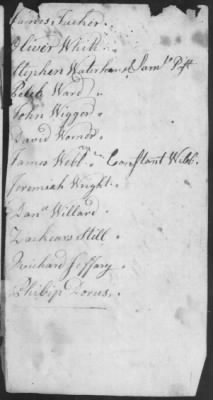 James Tucker.
Oliver White.
Stephen Waterhouse
Peleti Ward.
John Wigger.
David Worner.
James Webb. Constant Webb.
Jeremiah Wright.
Danl Willard.
Zacheas Still.
Richard Jeffary.
Philip Dorus.